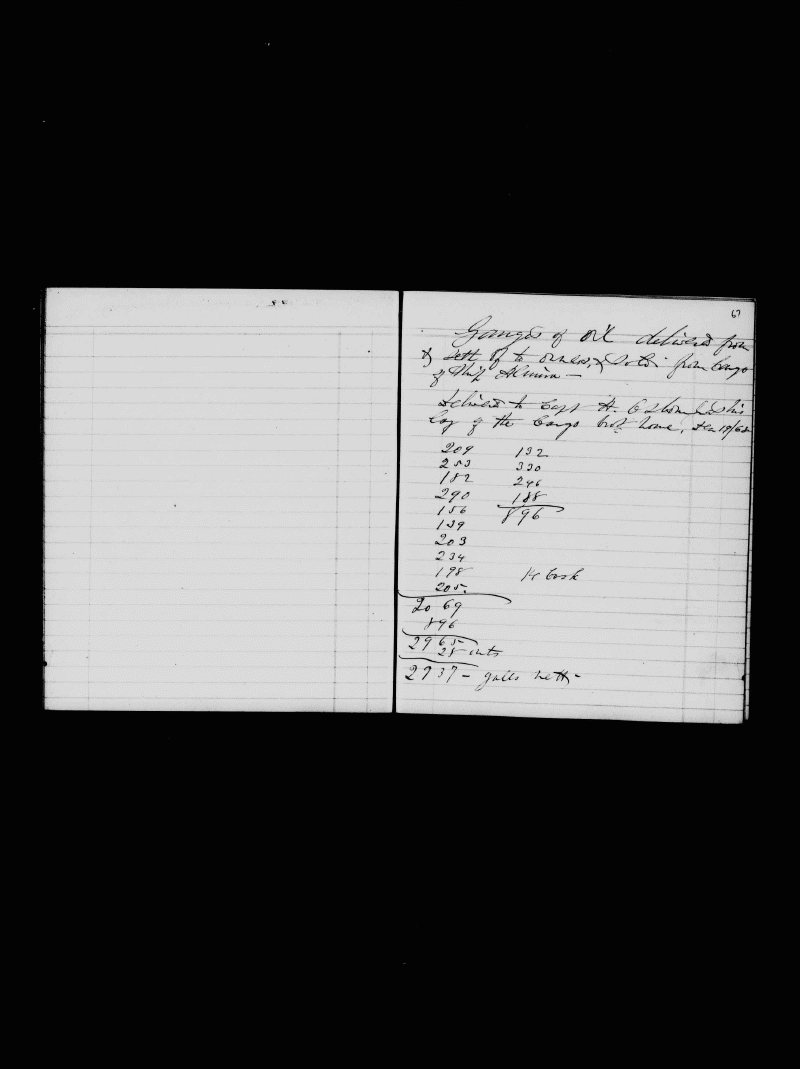 67
Gauges of oil delivered from
& sett of to owners, & Sold from Cargo
of Ship Almira —
Delivered to Capt H. his
Lay of the Cargo brot home,
209 132
253 330
182 246
290 188
156 896
139
203
234
198 14 Cask
205
2069
896
2965
28 outs
2937 - galls nett -